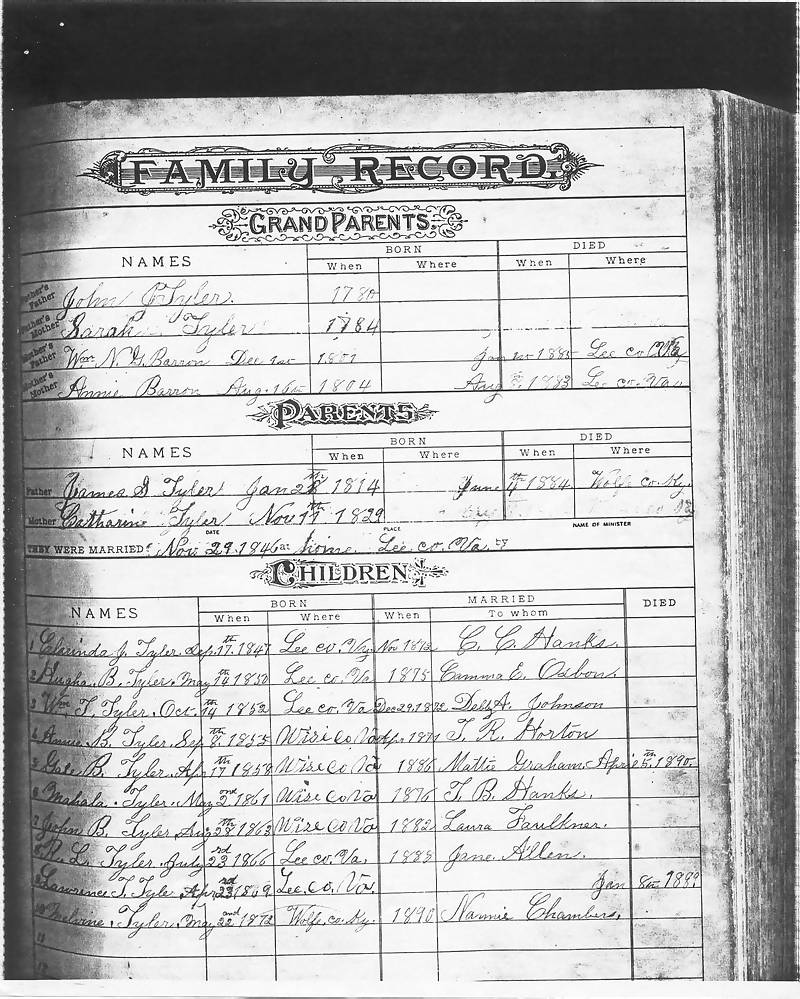 FAMILY RECORD.
GRANDPARENTS.
NAMES BORN DIED
When Where When Where
Father's Father John Tyler. 1780
Father's Mother Sarah Tyler 1784
Mother's Father Wm. N. G. Barron Dec 1st 1801 Jan 1st 1885 Lee co. Va
Mother's Mother Annie Barron Aug. 16th 1804 Aug 8, 1883 Lee co. Va.
PARENTS
NAMES BORN DIED
When Where When Where
Father James S Tyler Jan 28th 1814 June 4th 1884 Wolfe co. Ky.
Mother Catharine Tyler Nov 11th 1829
DATE PLACE NAME OF MINISTER
THEY WERE MARRIED: Nov 29, 1846 at home Lee co. Va by
CHILDREN
NAMES BORN MARRIED DIED
When Where When To whom
1 Clarinda J. Tyler. Sep. 17th 1847 Lee co. Va Nov 1872 C. C. Hanks.
2 B. Tyler. May 14th 1850 Lee co. Va 1875 Emma E. Osborn.
3 Wm T. Tyler. Oct. 14th 1852 Lee co. Va Dec 29, Johnson
4 Annie B. Tyler. Sep 8th 1855 Wise co. Va Apr. 1871 T. R. Horton
5 B. Tyler. Ap. 17th 1858 Wise co Va 1886 Mattie Graham. April 5th 1890.
6 Mahala Tyler. May 2nd 1861 Wise co Va 1876 T. B. Hanks.
7 John B. Tyler. Aug 28th 1863 Wise co Va 1882 Laura Faulkner.
8 R. L. Tyler. July 23rd 1866 Lee co. Va. 1885 Jane Allen.
9 Lawrence T. Tyle. Apr 23rd 1869 Lee. co. Va. Jan 8th 1889
10 Melvine Tyler. May 22nd 1872 Wolfe co. Ky. 1890 Nannie Chambers.
11
12